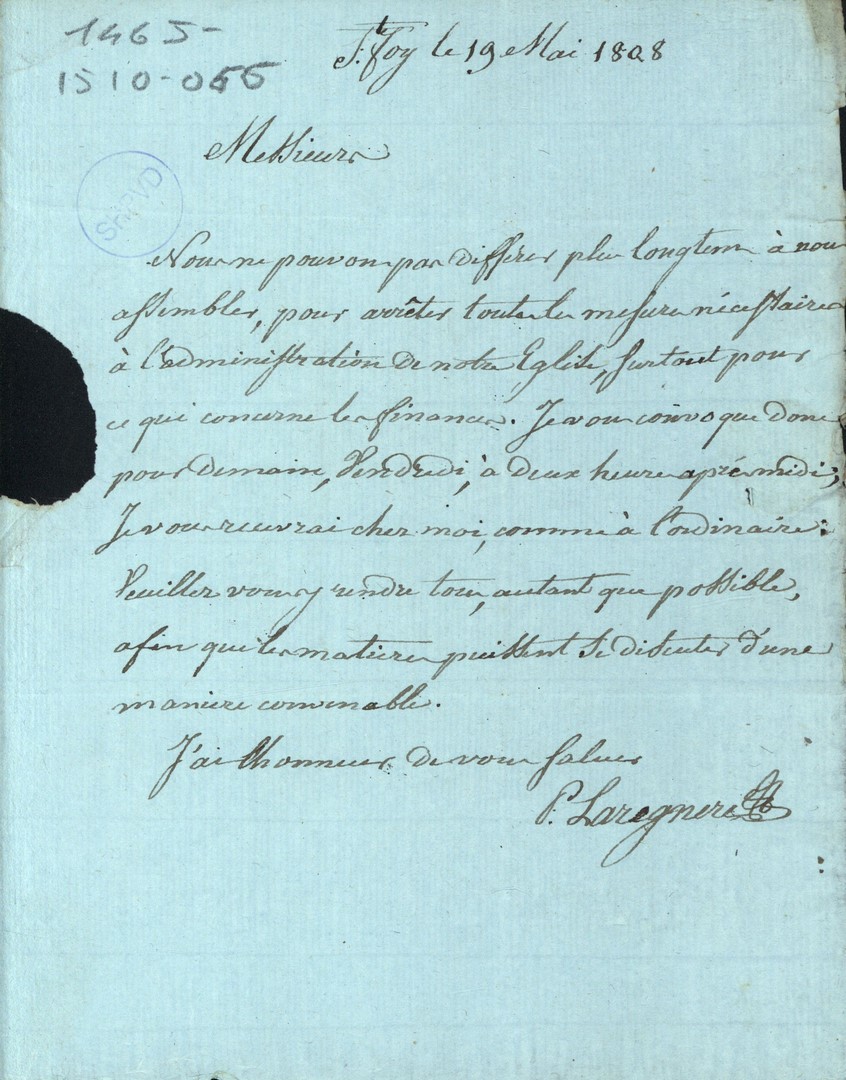 1465-
1510-066
S.te foy le 19 Mai 1808
Messieurs
SHPVD
Nous ne pouvons pas différer plus longtems à nous
assembler, pour arrêter toutes les mesures nécessaires
à l'administration de notre Eglise, surtout pour
ce qui concerne les finances. Je vous convoque donc
pour demain, Vendredi, à deux heures après midi;
Je vous recevrai chez moi, comme à l'ordinaire:
Veuillez vous y rendre tous, autant que possible,
afin que les matieres puissent se discuter d'une
maniere convenable.
J'ai l'honneur de vous saluer
P. Laregnere